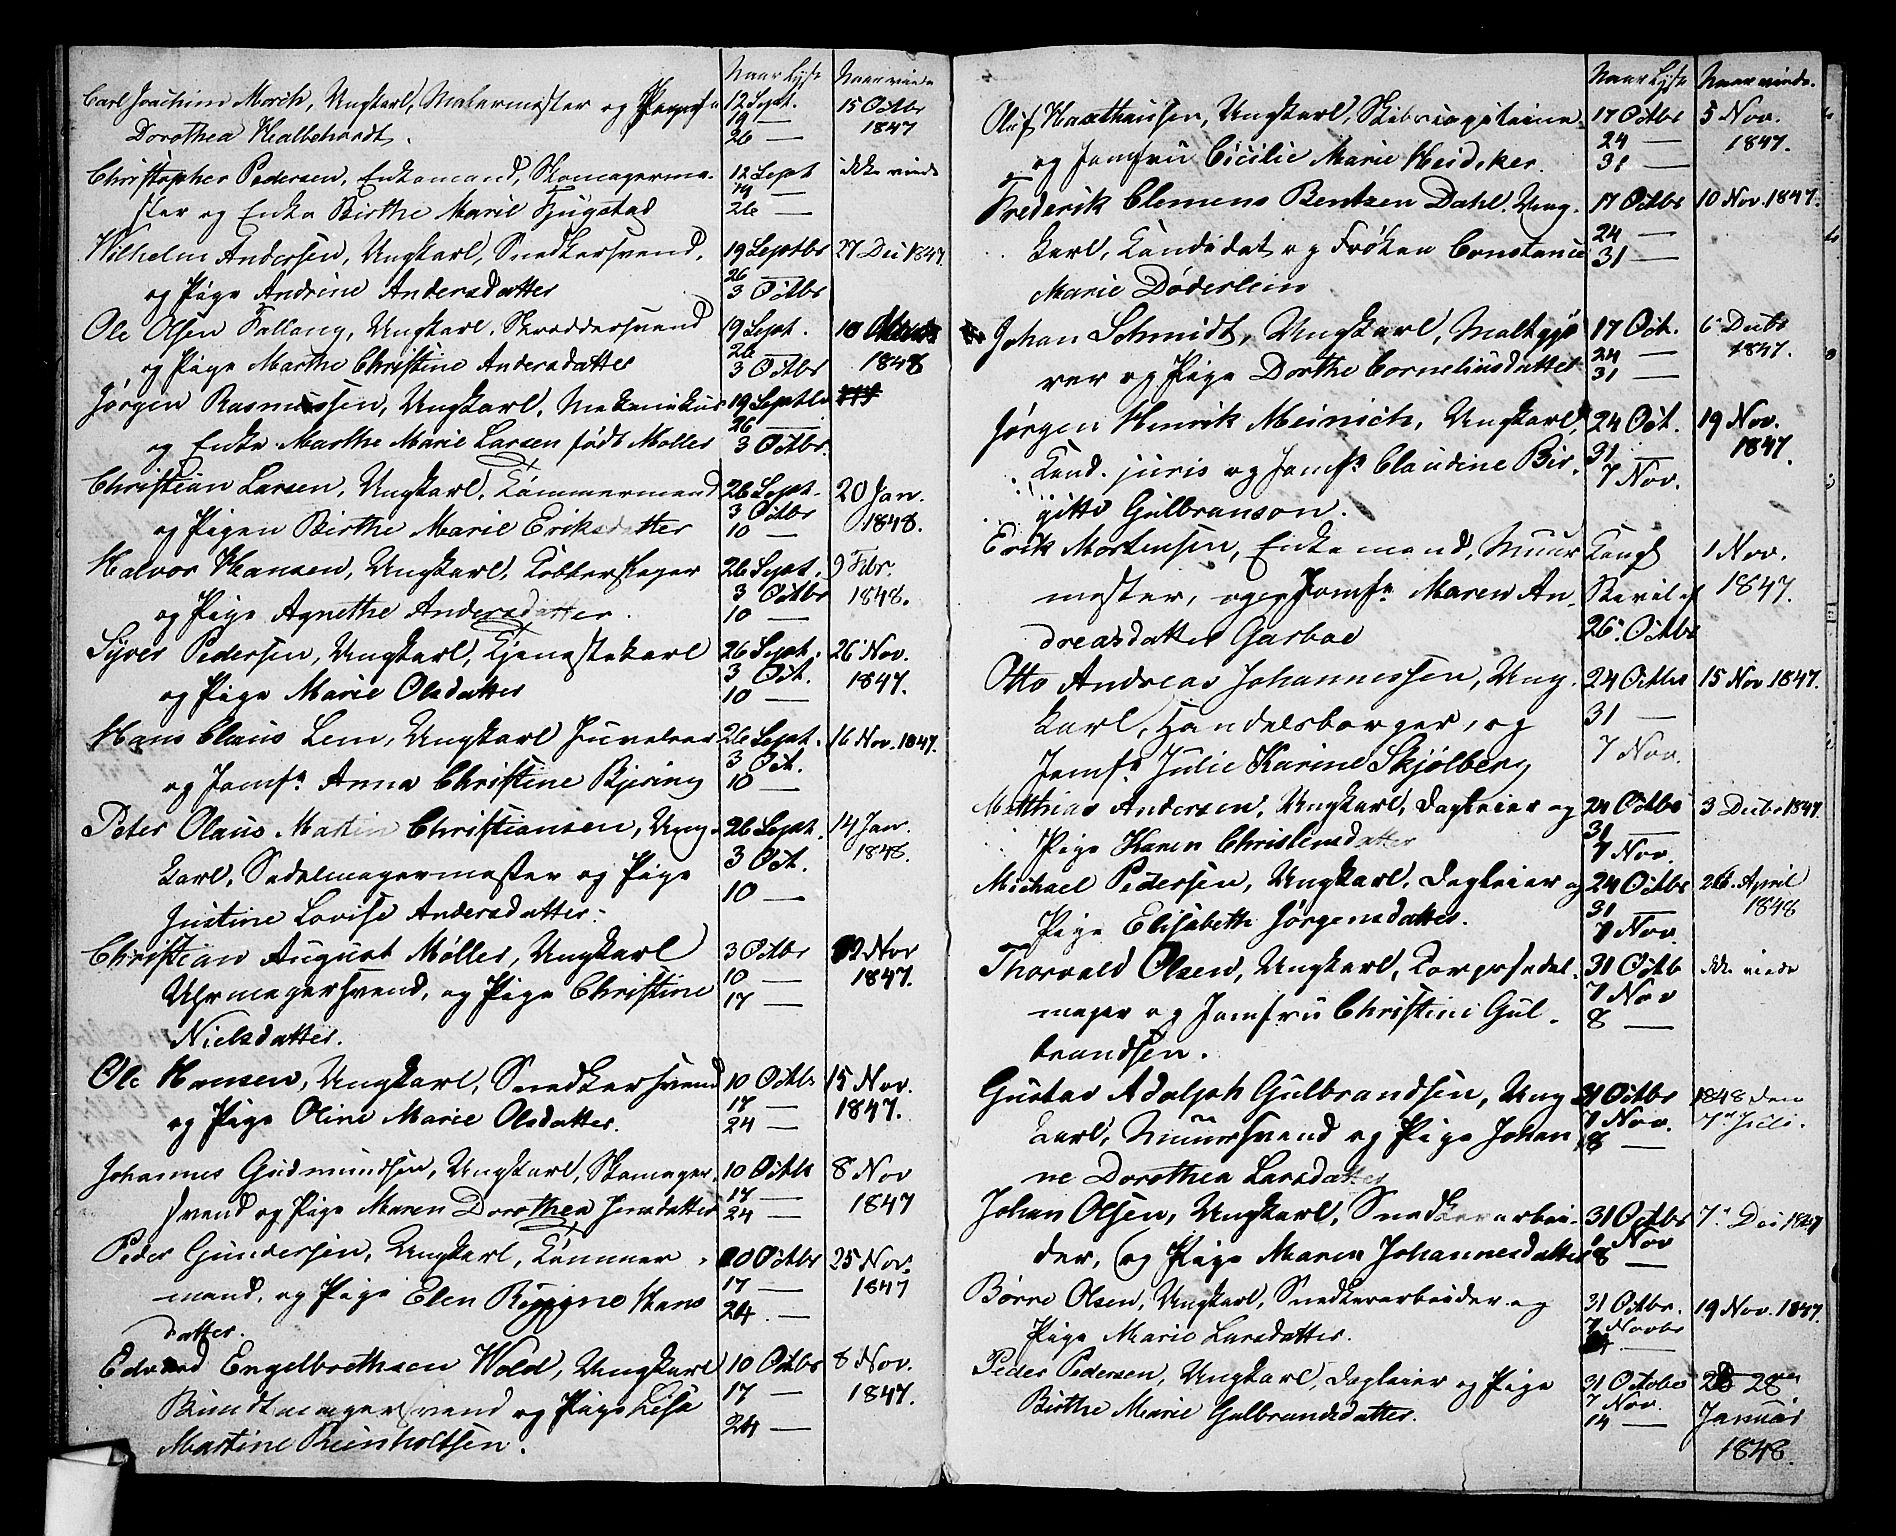 Naar Lyst Naar viede
Carl Joachim Morch, Ungkarl, Malermester og Pige 12 Sept. 15 Octbr
Dorothea 19 — 1847
26 —
Christopher Pedersen, Enkemand, Skomagerme- 12 Sept ikke viede
ster og Enke Birthe Marie 19 —
26 —
Wilhelm Andersen, Ungkarl, Snedkersvend, 19 Septbr 27 Dec 1847.
og Pige Andrine Andersdatter 26 —
3 Octbr
Ole Olsen Fallang, Ungkarl, Skreddersvend 19 Sept. 18
og Pige Marthe Christine Andersdatter 26 — 1848
3 Octbr
Jørgen Rasmussen, Ungkarl, Mekanikus 19 Septbr
og Enke Marthe Marie Larsen født Møller 26 —
3 Octbr.
Christian Larsen, Ungkarl, Tømmermand 26 Sept. 20 Jan.
og Pigen Birthe Marie Eriksdatter 3 Octbr 1848.
10 —
Halvor Hansen, Ungkarl, Kobberslager 26 Sept. 9 Febr.
og Pige Agnethe Andersdatter. 3 Octbr 1848.
10 —
Syver Pedersen, Ungkarl, Tjenestekarl 26 Sept. 26 Nov.
og Pige Marie Olsdatter 3 Oct. 1847.
10 —
Hans Claus Lem, Ungkarl Juveleer 26 Sept. 16 Nov. 1847.
og Jomfr Anna Christine Bjering 3 Oct.
10 —
Peter Olaus Martin Christiansen, Ung- 26 Sept. 14 Jan.
karl, Sadelmagermester og Pige 3 Oct. 1848.
Justine Lovise Andersdatter. 10 —
Christian August Møller, Ungkarl 3 Octbr Nov
Uhrmagersvend, og Pige Christine 10 — 1847.
Nielsdatter. 17 —
Ole Hansen, Ungkarl, Snedkersvend 10 Octbr 15 Nov.
og Pige Oline Marie Olsdatter. 17 — 1847.
24 —
Johannes Gudmundsen, Ungkarl, Skomager- 10 Octbr 8 Nov
svend og Pige Maren Dorothea Jensdatter 17 — 1847
24 —
Peder Gundersen, Ungkarl, Tømmer- 10 Octbr 25 Nov.
mand, og Pige Elen Hans 17 — 1847
datter. 24 —
Edvard Engelbrethsen Wold, Ungkarl 10 Octbr 8 Nov.
Bundtmagersvend og Pige Lise 17 — 1847.
Martine Reinholtsen. 24 —
Naar Lyst Naar viede.
Oluf Haxthausen, Ungkarl, 17 Octbr 5 Nov.
og Jomfru Cicilie Marie Heideker. 24 — 1847.
31 —
Frederik Clemens Bentzen Dahl, Ung- 17 Octbr 10 Nov. 1847.
karl, Kandidat og Frøken Constance 24 —
Marie Døderlein 31 —
Johan Schmidt, Ungkarl, Maltgjø 17 Oct. 6 Decbr
rer og Pige Dorthe Corneliusdatter 24 — 1847.
31 —
Jørgen Henrik Meinich, Ungkarl, 24 Oct. 19 Nov.
Cand. juris og Jomfr Claudine Bir- 31 — 1847.
gitte Gulbranson. 7 Nov.
Erik Mortensen, Enkemand, Muur Kongl 1 Nov.
mester, og Jomfr Maren An- Bevil. af 1847.
dreasdatter Garboe 26. Octbr
Otto Andreas Johannessen, Ung- 24 Octbr 15 Nov 1847.
karl, Handelsborger, og 31 —
Jomfr Julie Karine Skjølberg 7 Nov.
Matthias Andersen, Ungkarl, Dagleier og 24 Octbr 3 Decbr 1847.
Pige Karen Christensdatter 31 —
7 Nov.
Michael Pedersen, Ungkarl, Dagleier og 24 Octbr 26. April
Pige Elisabeth Jørgensdatter. 31 — 1848
7 Nov.
Thorvald Olsen, Ungkarl, Korpssadel- 31 Octb ikke viede
mager og Jomfru Christine Gul- 7 Nov
brandsen. 8 —
Gustav Adolph Gulbrandsen, Ung 31 Octbr 1848 den
karl, Muursvend og Pige Johan 7 Nov. 7de Juli.
ne Dorothea Larsdatter 8 —
Johan Olsen, Ungkarl, Snedkerarbei- 31 Octbr 7de Dec 1847
der, og Pige Maren Johannesdatter 7 Nov
8 —
Børre Olsen, Ungkarl, Snedkerarbeider og 31 Octbr. 19 Nov. 1847.
Pige Marie Larsdatter. 7 Novbr
Peder Pedersen, Ungkarl, Dagleier og Pige 31 Octobr 28
Birthe Marie Gulbrandsdatter. 7 Nov. Januar
14 — 1848.